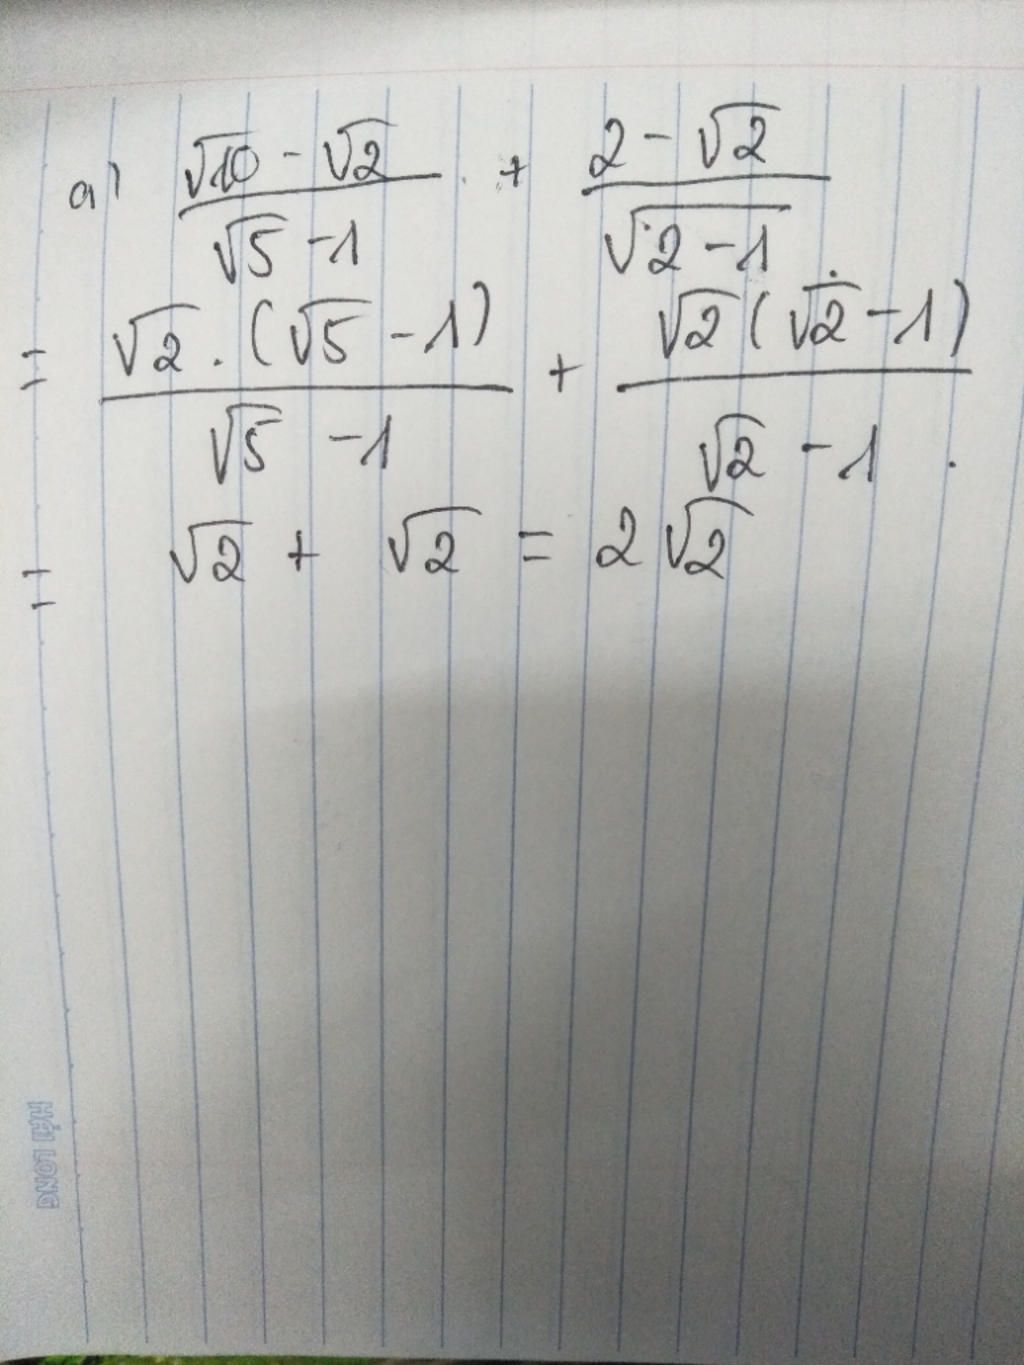 a) \frac{\sqrt{10} - \sqrt{2}}{\sqrt{5} - 1} + \frac{2 - \sqrt{2}}{\sqrt{2 - 1}}
= \frac{\sqrt{2} . (\sqrt{5} - 1)}{\sqrt{5} - 1} + \frac{\sqrt{2} (\sqrt{2} - 1)}{\sqrt{2} - 1} .
= \sqrt{2} + \sqrt{2} = 2\sqrt{2}
HẢI LONG